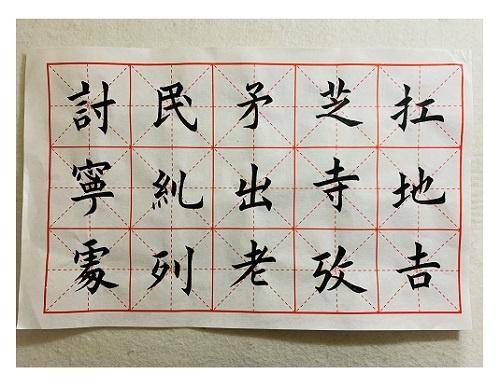 扛地吉
芝寺攷
矛出老
民糺列
討寧處